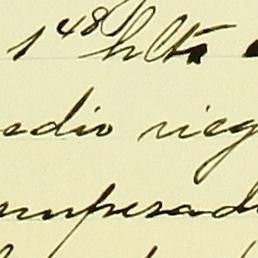 1⁴⁸ hlts
edio rieg
mpesad